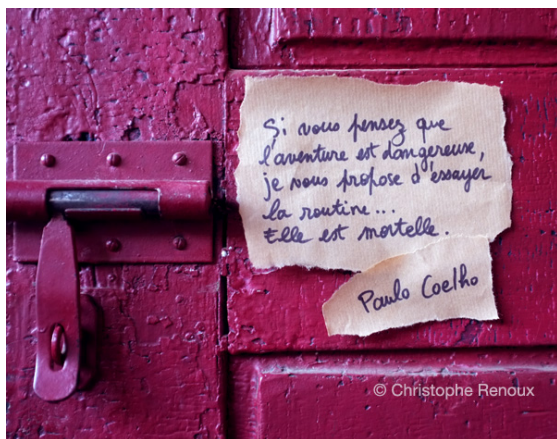 Si vous pensez que
l'aventure est dangereuse,
je vous propose d'essayer
la routine...
Elle est mortelle.
Paulo Coelho
© Christophe Renoux